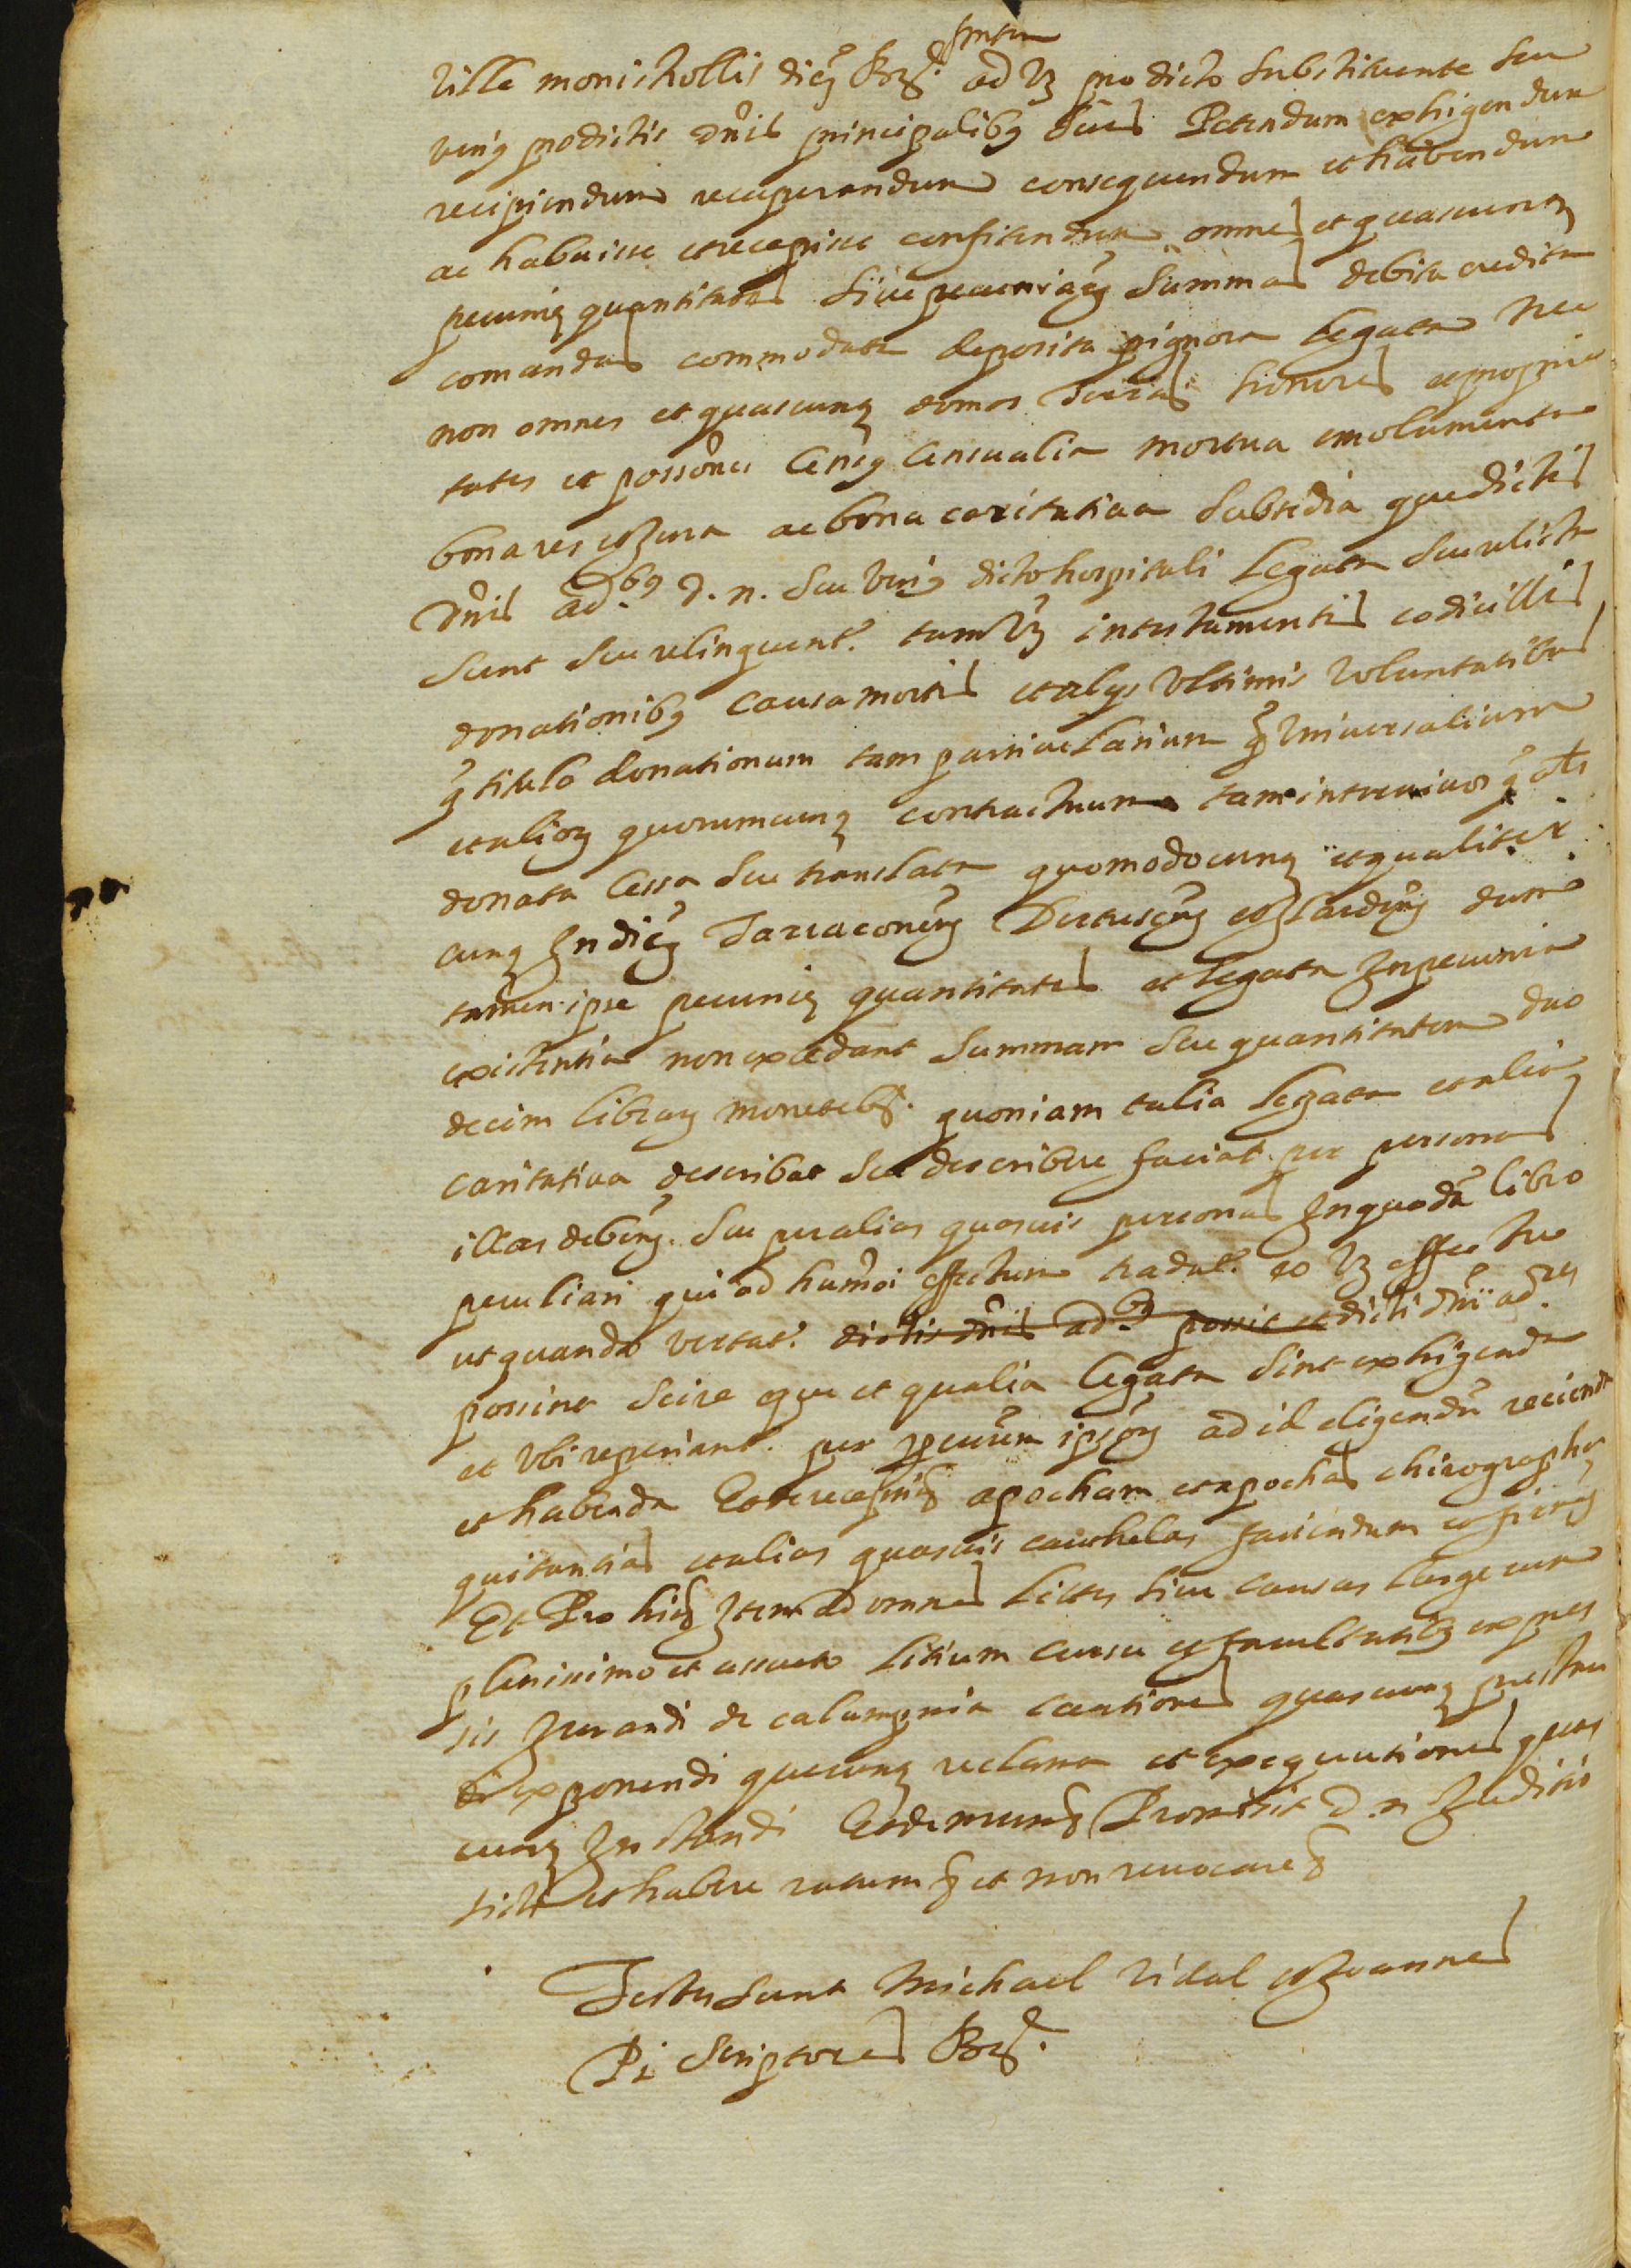 ville monistrollis dicę Barñ. absentem ad vz pro dicto substituente seu
verig pro dictis dñis principalibg suis Petendum exhigendum
recipiendum recuperandum consequendum et habendum
ac habuisse et recepisse confitendum omnes et quascunq
pecunię quantitates sive pecuniarg summas debita credita
comandas commodata deposita pignora legata nec
non omnes et quascunq domos terras honores ac proprie
tates et possões Censg Censualia mortua emolumenta
bona res et jura ac bona caritativa subsidia que dictis
Dñis ad.bg d. n. seu verig dicto hospitali legata seu relicta
sunt seu relinquent. tam vz in testamentis codicillis
donationibg causa mortis et alys ultimis voluntatibus
q̃ titulo donationum tam particularium q̃ universalium
et aliorg quorumcunq contractuum tam inter vivos q̃ als
donata Cessa seu translata quomodocunq et qualiter
cunq In dicę Tarraconeñ Dertuseñ et Ilardeñ dum
tamen ipse pecunię quantitates et legata In pecunia
existentia non excedant summam seu quantitatem duo
decim librarg monete bar. quoniam talia legata et alia
caritativa describat seu describere faciat per personas
illas debeng. seu per alias quasvis personas In quodã libro
peculiari qui ad humõi effectum tradat. eo vz effectu
ut quando vertat. dictis dñis ad.bg possit et dicti dñi ad.res
possint scire que et qualia legata sint exhigenda
et ubi reperiant. per procurẽm ipsorg ad id eligendũ recipienda
et habenda Et de receptis apocham et apochas chirographa
quitantias et alias quasvis cauthelas faciendum et firmg
Et Pro his Item ad omnes lites sive causas large cum
plenissimo et assueto litium cursu et facultatibg expres
sis Jurandi de calumpnia cautiones quascunq prestan
di exponendi quecunq reclama et exequutiones quas
cunq Instandi Et demum Promisit d. n. Juditio
sisti et habere ratum et non revocare
Testes sunt Michael Vidal et Joannes
Pi scriptores Bar.